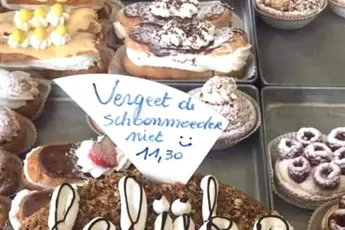 Vergeet de
schoonmoeder
niet
11,30